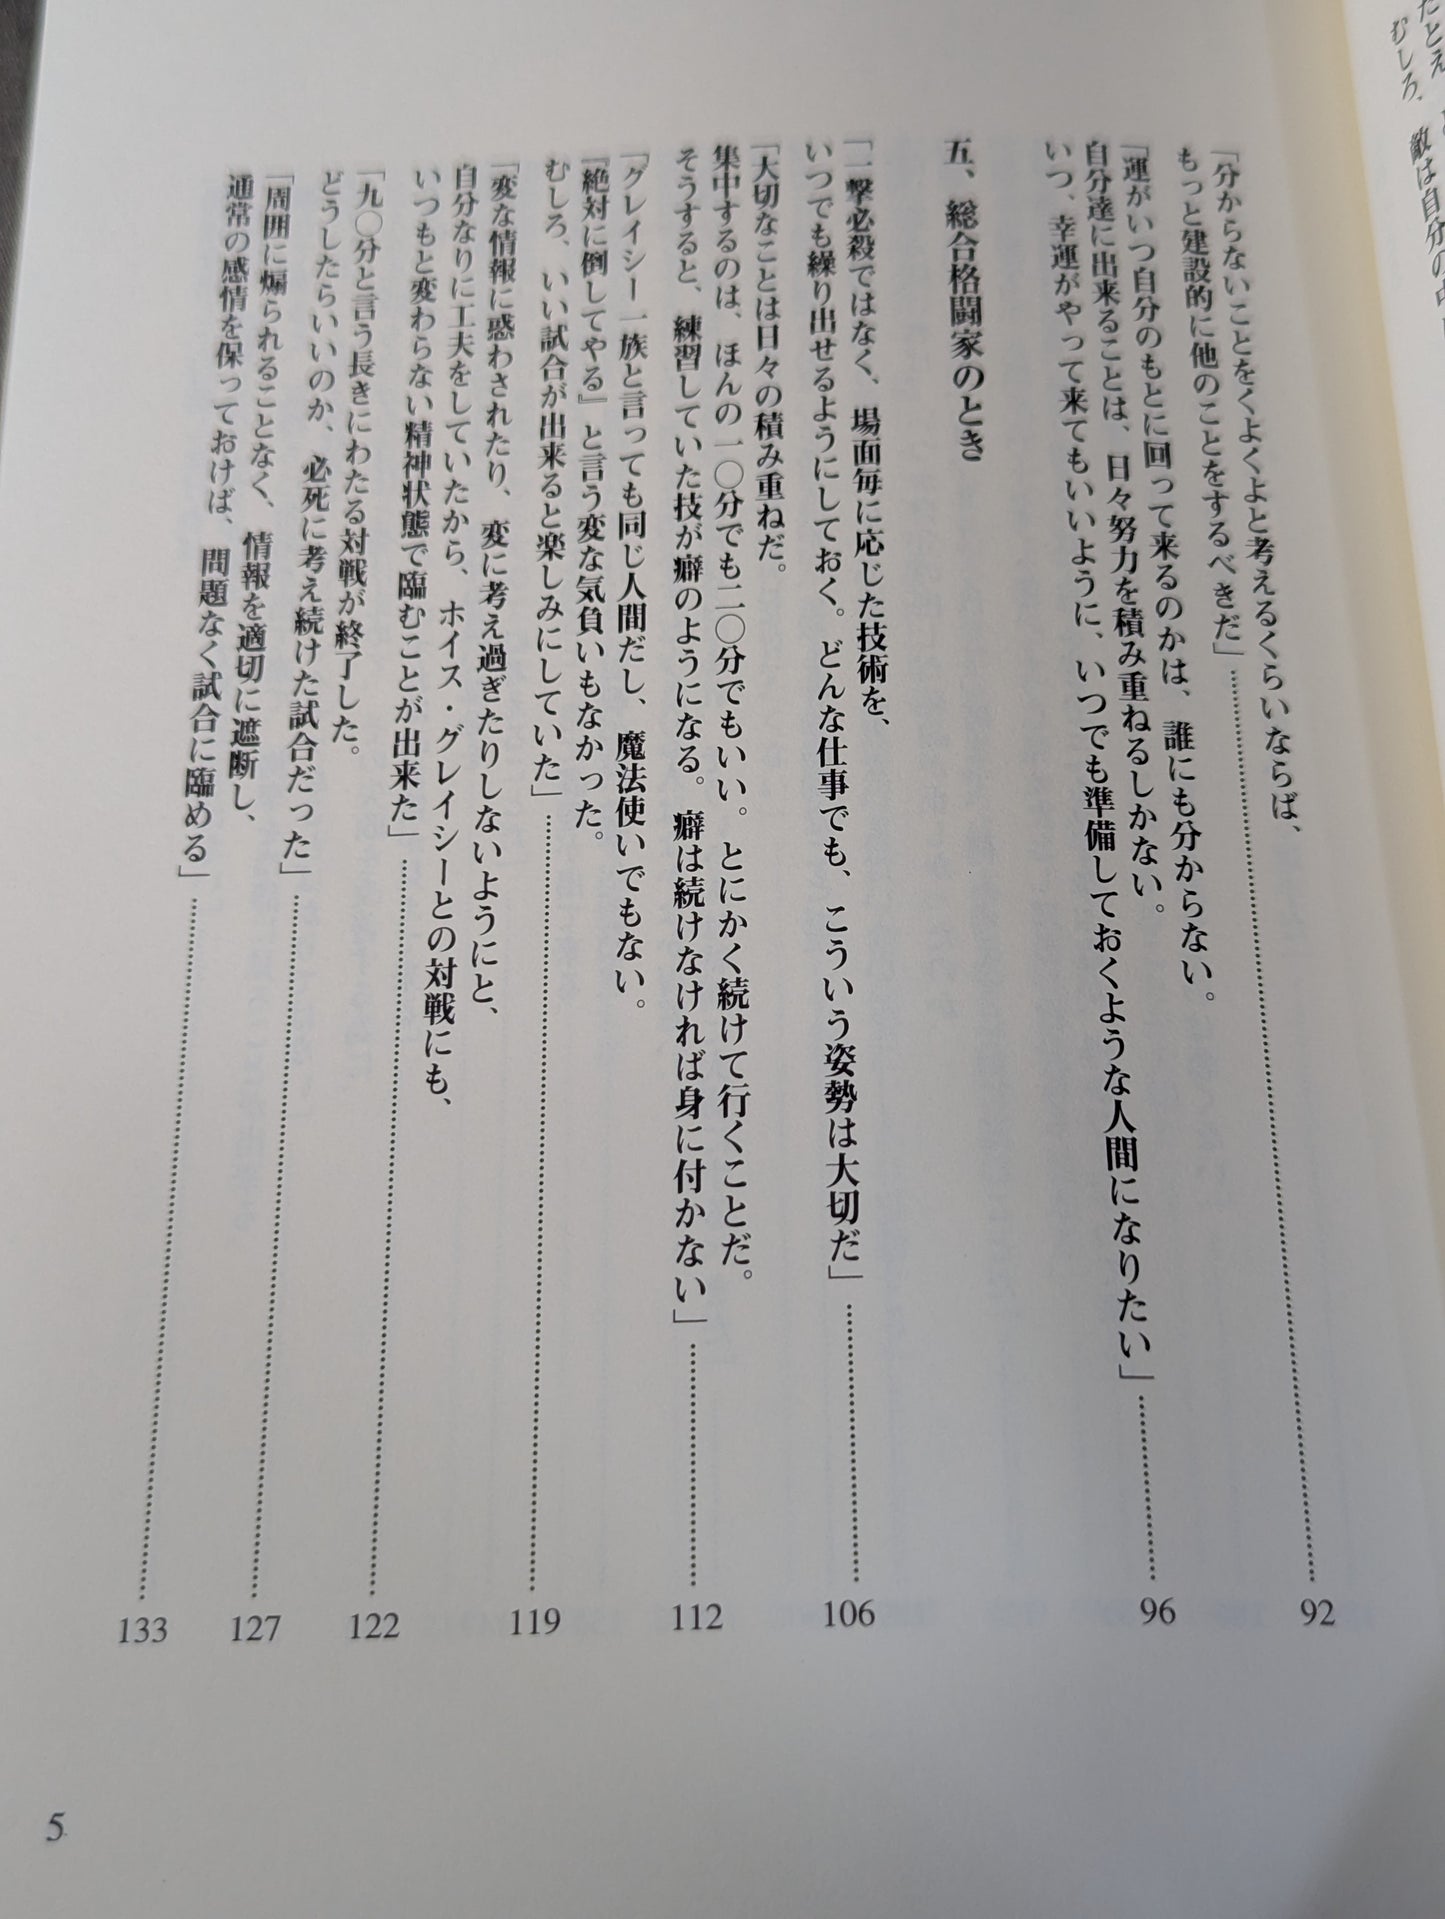 たとえ
むしろ、敵は自分の中
「分からないことをくよくよと考えるくらいならば、
もっと建設的に他のことをするべきだ」 92
「運がいつ自分のもとに回って来るのかは、誰にも分からない。
自分達に出来ることは、日々努力を積み重ねるしかない。
いつ、幸運がやって来てもいいように、いつでも準備しておくような人間になりたい」 96
五、総合格闘家のとき
「一撃必殺ではなく、場面毎に応じた技術を、
いつでも繰り出せるようにしておく。どんな仕事でも、こういう姿勢は大切だ」 106
「大切なことは日々の積み重ねだ。
集中するのは、ほんの一〇分でも二〇分でもいい。とにかく続けて行くことだ。
そうすると、練習していた技が癖のようになる。癖は続けなければ身に付かない」 112
「グレイシー一族と言っても同じ人間だし、魔法使いでもない。
『絶対に倒してやる』と言う変な気負いもなかった。
むしろ、いい試合が出来ると楽しみにしていた」 119
「変な情報に惑わされたり、変に考え過ぎたりしないようにと、
自分なりに工夫をしていたから、ホイス・グレイシーとの対戦にも、
いつもと変わらない精神状態で臨むことが出来た」 122
「九〇分と言う長きにわたる対戦が終了した。
どうしたらいいのか、必死に考え続けた試合だった」 127
「周囲に煽られることなく、情報を適切に遮断し、
通常の感情を保っておけば、問題なく試合に臨める」 133
5